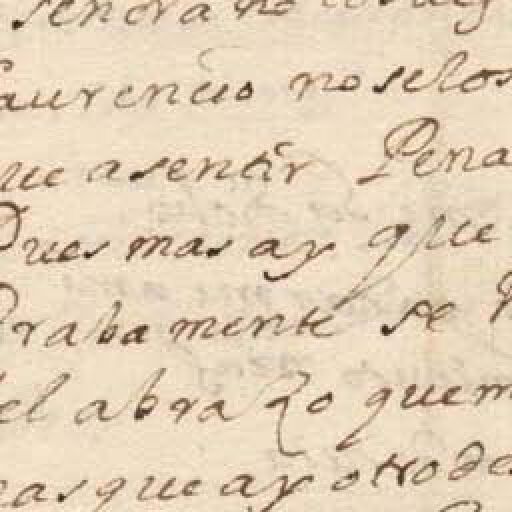 señora no
aurencio noselos
ue asentir Pena
Pues mas ay que
Grabamente se
el abrazo quem
as que ay otro de